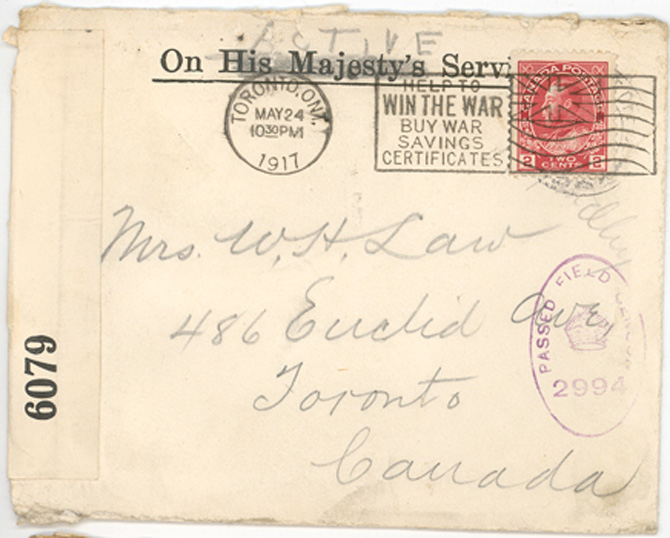 ACTIVE
On His Majesty's Servi
TORONTO, ONT.
MAY 24
10 30 PM
1917
HELP TO
WIN THE WAR
BUY WAR
SAVINGS
CERTIFICATES
CANADA POSTAGE
2 TWO CENTS 2
Mrs. W. H. Law
486 Euclid Ave,
Toronto
Canada
PASSED FIELD
2994
6079